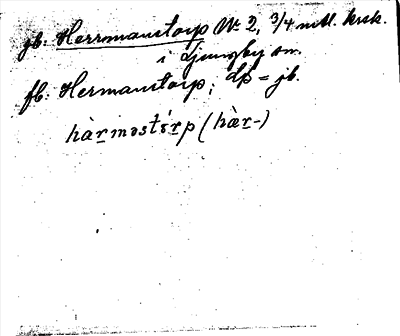 jb. Herrmanstorp № 2, 3/4 mtl. krsk.
i Ljungby sn.
fb. Hermanstorp; dp = jb.
hàr̲məstɷ́r̲p (hàr̲-)